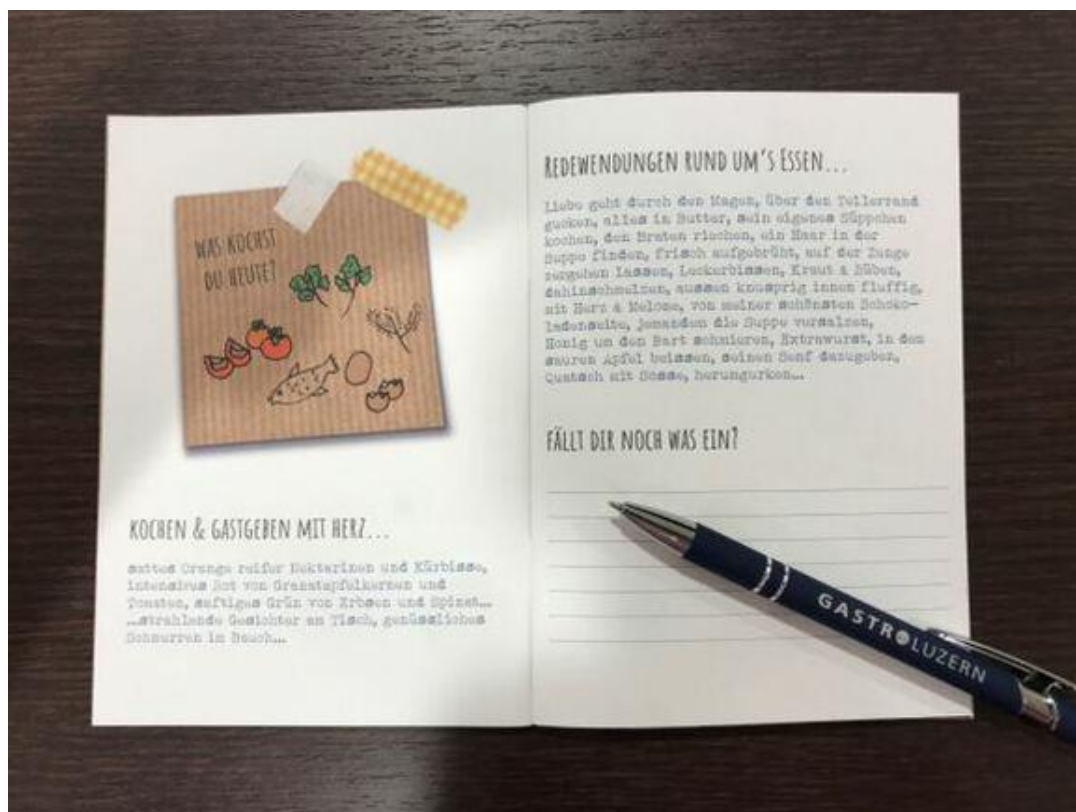 WAS KOCHST
DU HEUTE?
KOCHEN & GASTGEBEN MIT HERZ...
sattes Orange reifer Nektarinen und Kürbisse,
intensives Rot von Granatapfelkernen und
Tomaten, saftiges Grün von Erbsen und Spinat...
...strahlende Gesichter am Tisch, genüssliches
Schnurren im Bauch...
REDEWENDUNGEN RUND UM'S ESSEN...
Liebe geht durch den Magen, über den Tellerrand
gucken, alles in Butter, sein eigenes Süppchen
kochen, den Braten riechen, ein Haar in der
Suppe finden, frisch aufgebrüht, auf der Zunge
zergehen lassen, Leckerbissen, Kraut & Rüben,
dahinschmelzen, aussen knusprig innen fluffig,
mit Herz & Melone, von meiner schönsten Schoko-
ladenseite, jemanden die Suppe versalzen,
Honig um den Bart schmieren, Extrawurst, in den
sauren Apfel beissen, seinen Senf dazugeben,
Quatsch mit Sosse, herumgurken...
FÄLLT DIR NOCH WAS EIN?
GASTROLUZERN